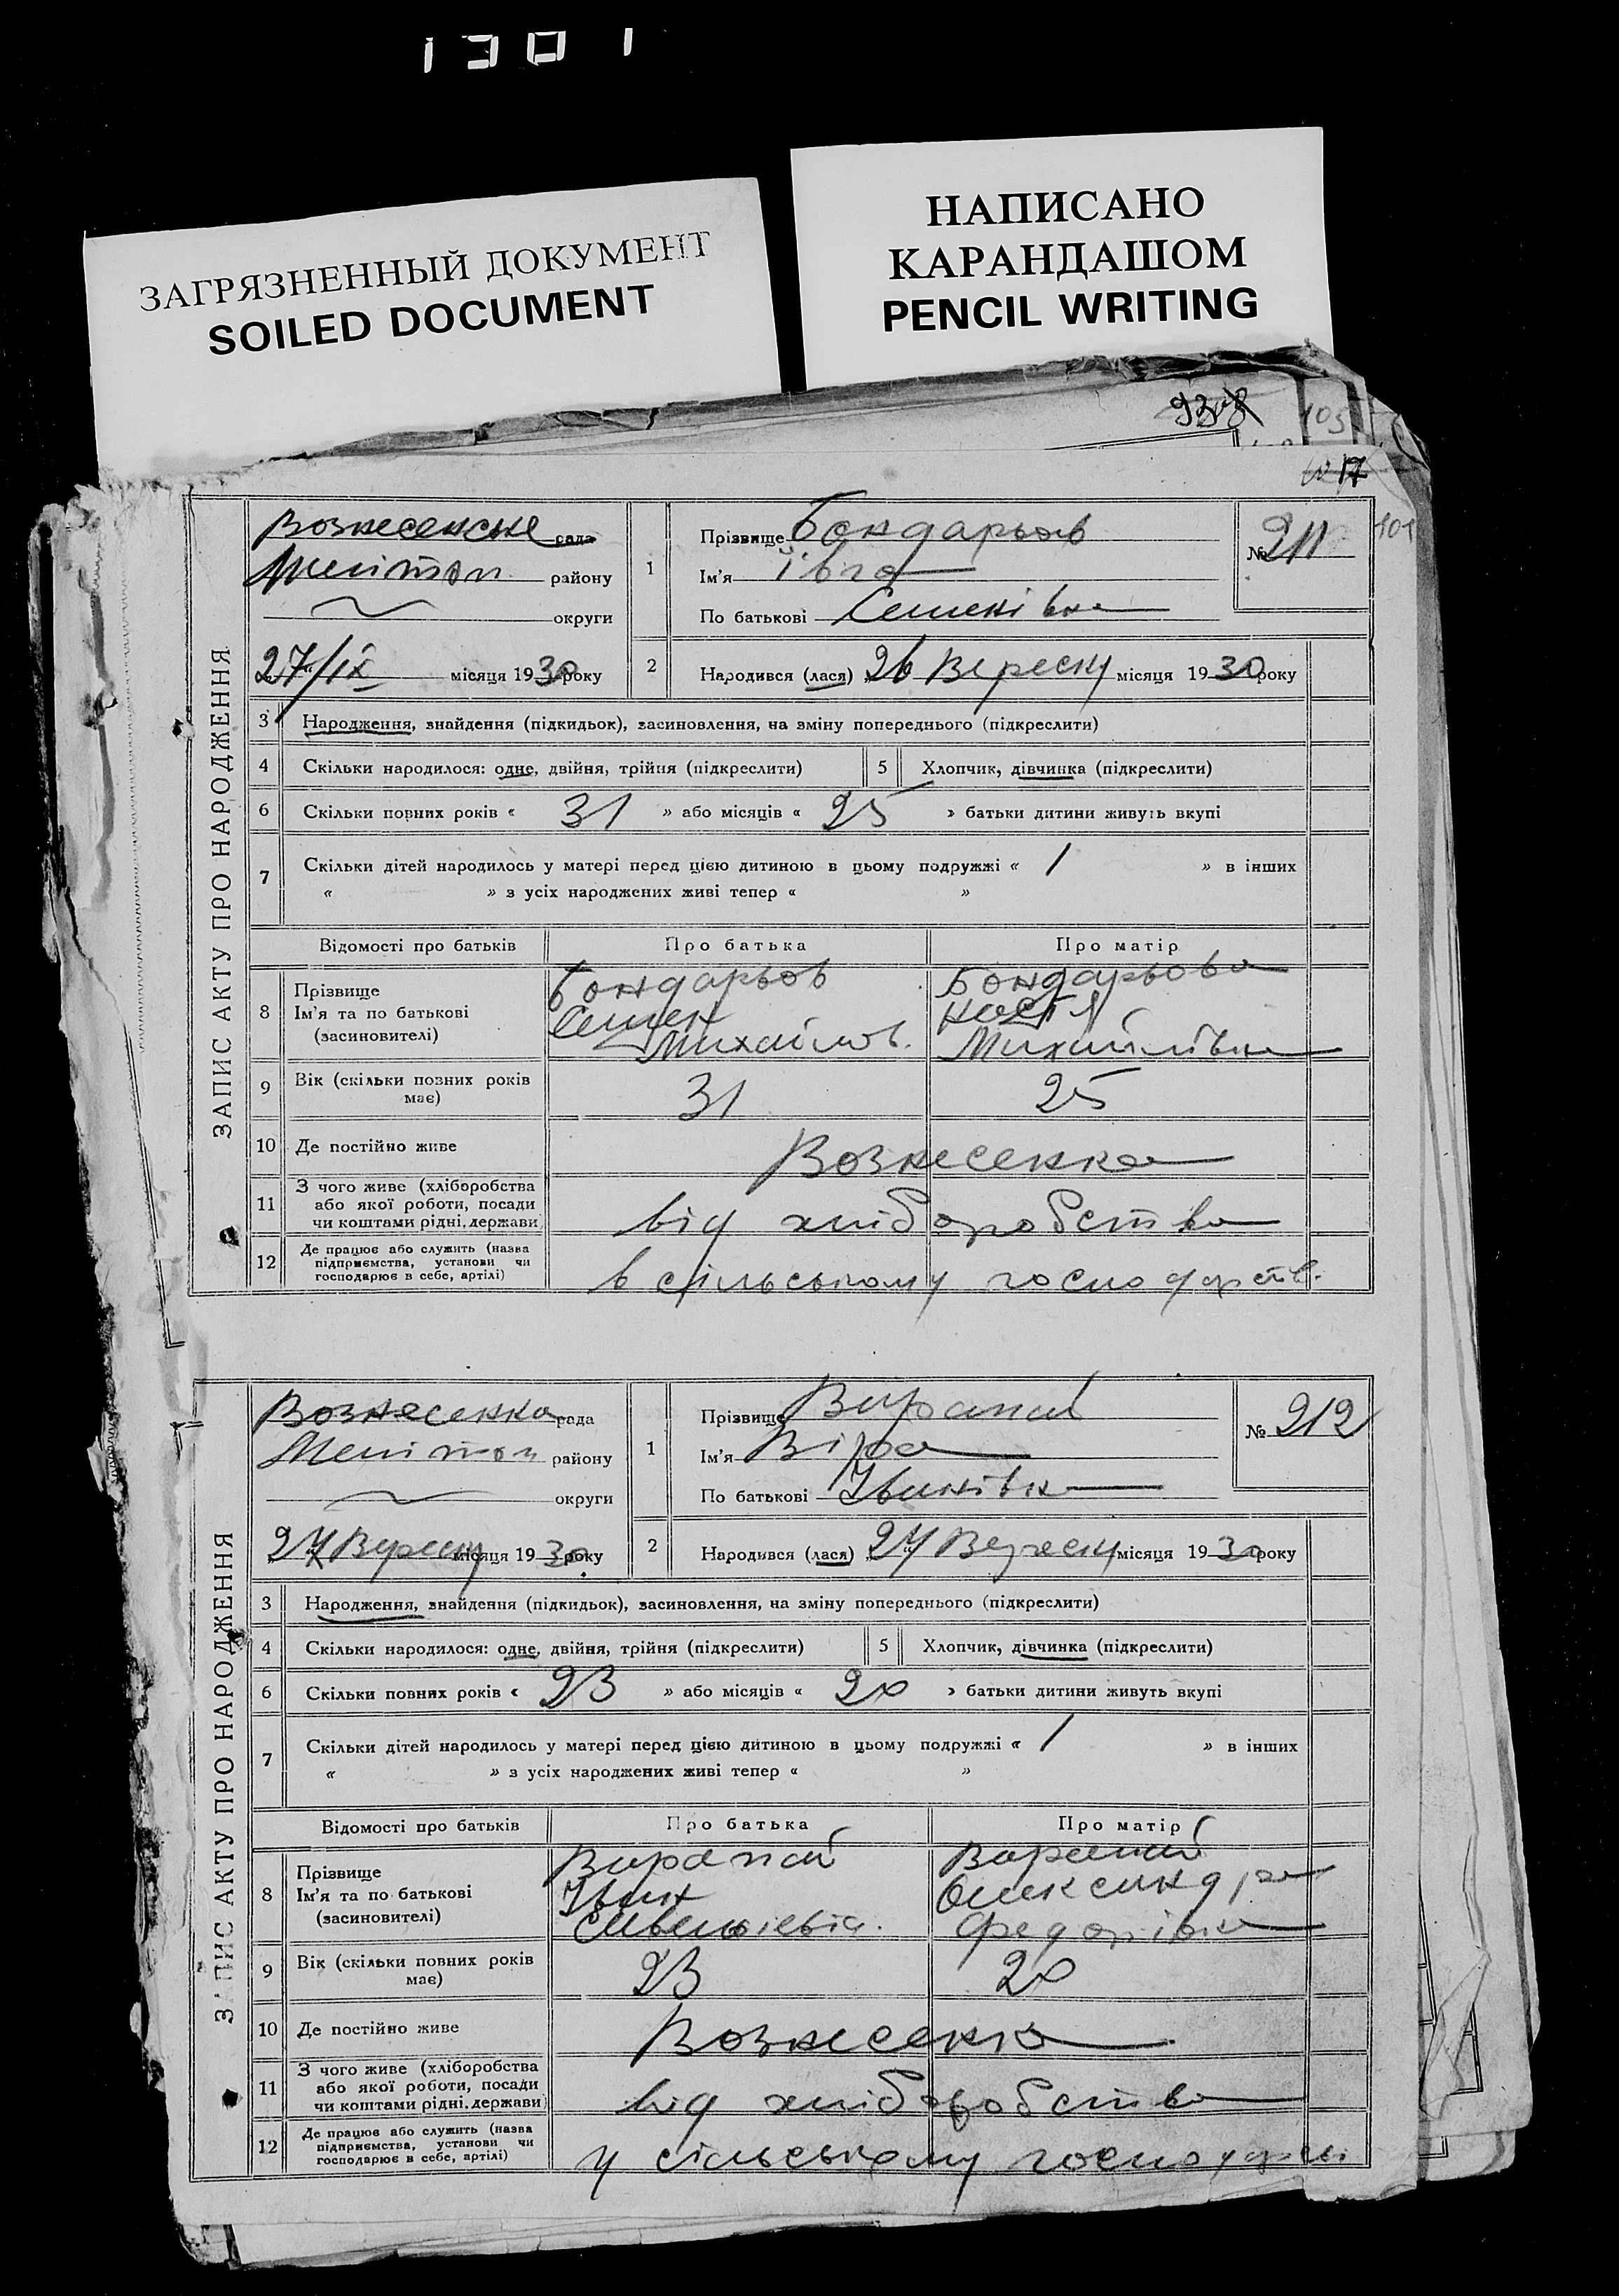 1301
ЗАГРЯЗНЕННЫЙ ДОКУМЕНТ
SOILED DOCUMENT
НАПИСАНО
КАРАНДАШОМ
PENCIL WRITING
103
17
101
ЗАПИС АКТУ ПРО НАРОДЖЕННЯ
Вознесенське сада
Мелітоп району
округи
27/IX місяця 1930 року
1
Прізвище Бондарьов
Ім'я Івга
По батькові Семенівна
№ 211
2
Народився (лася) 26 Вересну місяця 1930 року
3 Народження, знайдення (підкидьок), засиновлення, на зміну попереднього (підкреслити)
4 Скільки народилося: одне, двійня, трійня (підкреслити) 5 Хлопчик, дівчинка (підкреслити)
6 Скільки повних років « 31 » або місяців « 25 » батьки дитини живуть вкупі
7 Скільки дітей народилось у матері перед цією дитиною в цьому подружжі « 1 » в інших
« » з усіх народжених живі тепер « »
Відомості про батьків Про батька Про матір
8 Прізвище Бондарьов Бондарьова
Ім'я та по батькові Семен Настя
(засиновителі) Михайлов. Михайлівна
9 Вік (скільки повних років має) 31 25
10 Де постійно живе Вознесенка
11 З чого живе (хліборобства
або якої роботи, посади
чи коштами рідні, держави) від хліборобства
12 Де працює або служить (назва
підприємства, установи чи
господарює в себе, артілі) в сільському господарств.
ЗАПИС АКТУ ПРО НАРОДЖЕННЯ
Вознесенка рада
Мелітоп району
округи
27 Вересну місяця 1930 року
1
Прізвище
Ім'я Віра
По батькові Іванівна
№ 212
2
Народився (лася) 27 Вересну місяця 1930 року
3 Народження, знайдення (підкидьок), засиновлення, на зміну попереднього (підкреслити)
4 Скільки народилося: одне, двійня, трійня (підкреслити) 5 Хлопчик, дівчинка (підкреслити)
6 Скільки повних років « 23 » або місяців « 20 » батьки дитини живуть вкупі
7 Скільки дітей народилось у матері перед цією дитиною в цьому подружжі « 1 » в інших
« » з усіх народжених живі тепер « »
Відомості про батьків Про батька Про матір
8 Прізвище
Ім'я та по батькові Іван Олександра
(засиновителі) Федорівна
9 Вік (скільки повних років має) 23 20
10 Де постійно живе Вознесенка
11 З чого живе (хліборобства
або якої роботи, посади
чи коштами рідні, держави) від хліборобства
12 Де працює або служить (назва
підприємства, установи чи
господарює в себе, артілі) у сільському